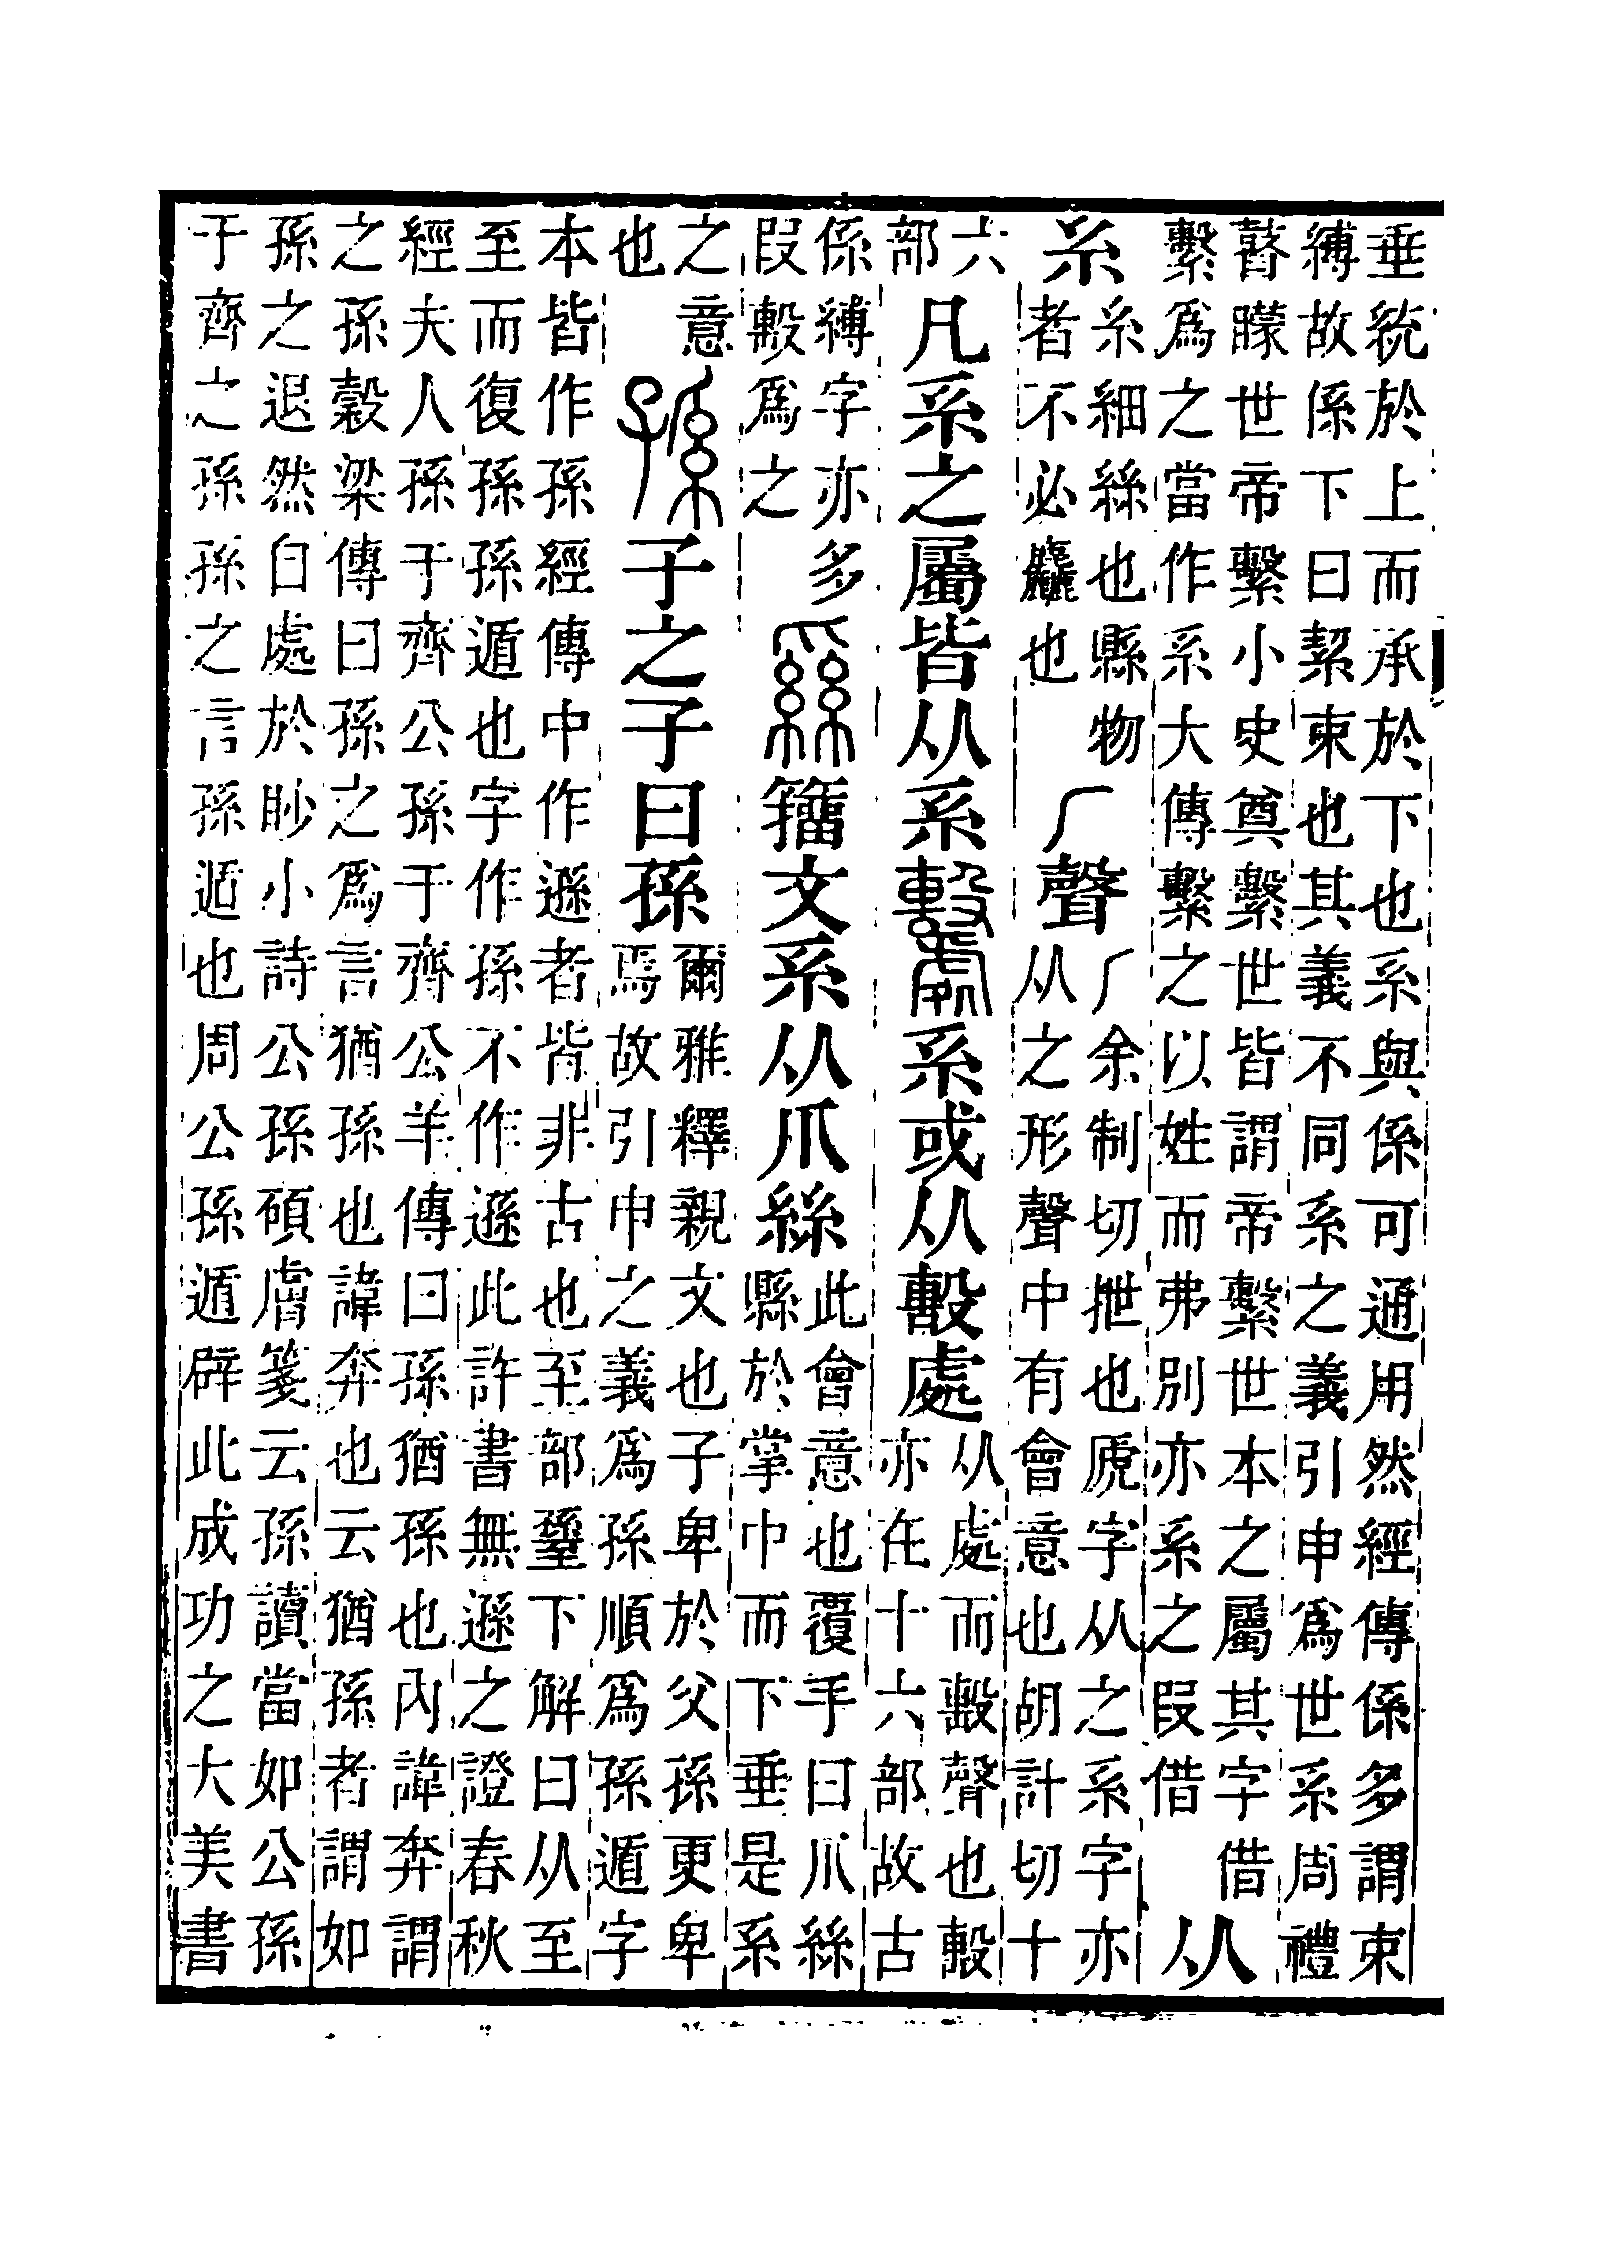 垂統於上而承於下也系與係可通用然經傳係多謂束
縛故係下曰絜束也其義不同系之義引申爲世系周禮
瞽矇世帝繫小史奠繫世皆謂帝繫世本之屬其字借
繫爲之當作系大傳繫之以姓而弗別亦系之叚借
从
糸
糸細絲也縣物
者不必麤也
𠂆聲
𠂆余制切抴也虒字从之系字亦
从之形聲中有會意也胡計切十
六
部
凡系之屬皆从系𣫦系或从毄處
从處而毄聲也毄
亦在十六部故古
係縛字亦多
叚毄爲之
籒文系从爪絲
此會意也覆手曰爪絲
縣於掌中而下垂是系
之意
也
孫子之子曰孫
爾雅釋親文也子卑於父孫更卑
焉故引申之義爲孫順爲孫遁字
本皆作孫經傳中作遜者皆非古也至部下解曰从至
至而復孫孫遁也字作孫不作遜此許書無遜之證春秋
經夫人孫于齊公孫于齊公羊傳曰孫猶孫也內諱奔謂
之孫穀梁傳曰孫之爲言猶孫也諱奔也云猶孫者謂如
孫之退然自處於眇小詩公孫碩膚箋云孫讀當如公孫
于齊之孫孫之言孫遁也周公孫遁辟此成功之大美書